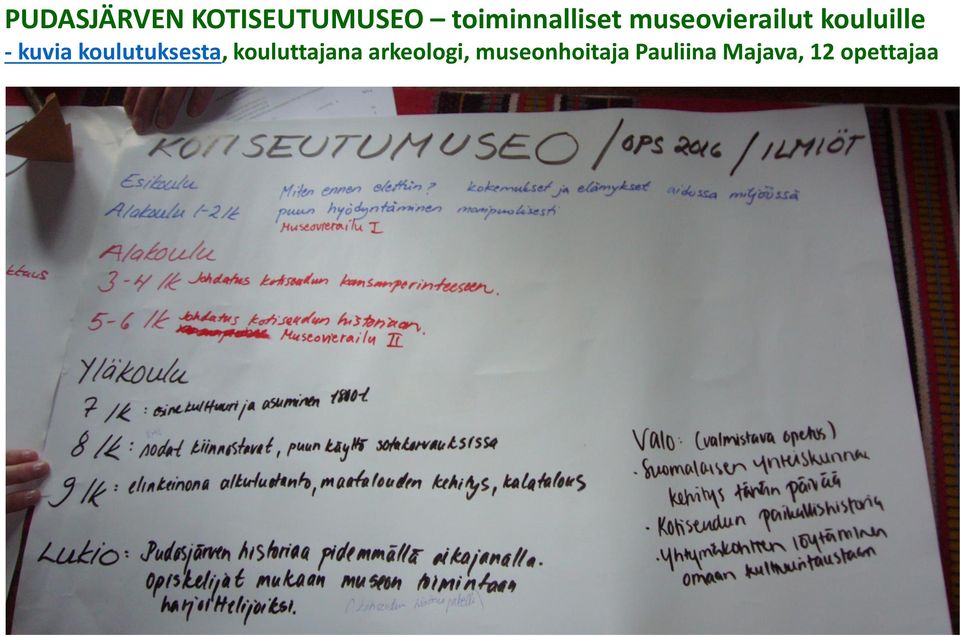 PUDASJÄRVEN KOTISEUTUMUSEO – toiminnalliset museovierailut kouluille
- kuvia koulutuksesta, kouluttajana arkeologi, museonhoitaja Pauliina Majava, 12 opettajaa
KOTISEUTUMUSEO / OPS 2016 / ILMIÖT
Esikoulu
Alakoulu 1-2 lk
Miten ennen elettiin? kokemukset ja elämykset aidossa miljöössä
puun hyödyntäminen monipuolisesti
Museovierailu I
Alakoulu
3-4 lk Johdatus kotiseudun kansanperinteeseen.
5-6 lk Johdatus kotiseudun historiaan.
Museovierailu II
Yläkoulu
7 lk : esinekulttuuri ja asuminen 1800-l
8 lk : sodat kiinnostavat, puun käyttö sotakorvauksissa
9 lk : elinkeinona alkutuotanto, maatalouden kehitys, kalatalous
Lukio: Pudasjärven historiaa pidemmällä aikajanalla.
opiskelijat mukaan museon toimintaan
harjoittelijoiksi.
Valo: (valmistava opetus)
· Suomalaisen yhteiskunnan
kehitys tähän päivään
· Kotiseudun paikallishistoria
· Yhtymäkohtien löytäminen
omaan kulttuuritaustaan